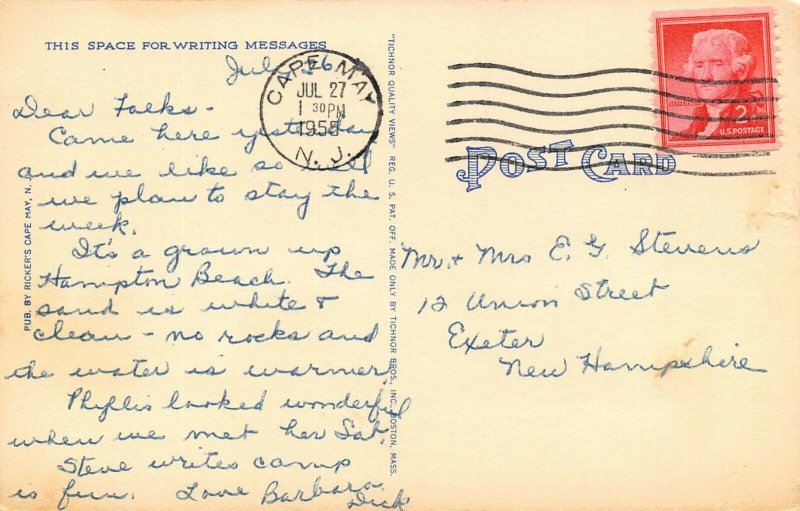 THIS SPACE FOR WRITING MESSAGES
July 26
Dear Folks -
Came here yesterday
and we like so well
we plan to stay the
week.
It's a grown up
Hampton Beach. The
sand is white &
clean - no rocks and
the water is warmer.
Phyllis looked wonderful
when we met her Sat.
Steve writes camp
is fun. Love Barbara
Dick
PUB. BY RICKER'S CAPE MAY, N.
"TICHNOR QUALITY VIEWS" REG. U. S. PAT. OFF. MADE ONLY BY TICHNOR BROS. INC., BOSTON, MASS.
CAPE MAY
JUL 27
1 30 PM
1955
N. J.
JEFFERSON
2¢
U.S. POSTAGE
POST CARD
Mr. & Mrs E. G. Stevens
12 Union Street
Exeter
New Hampshire